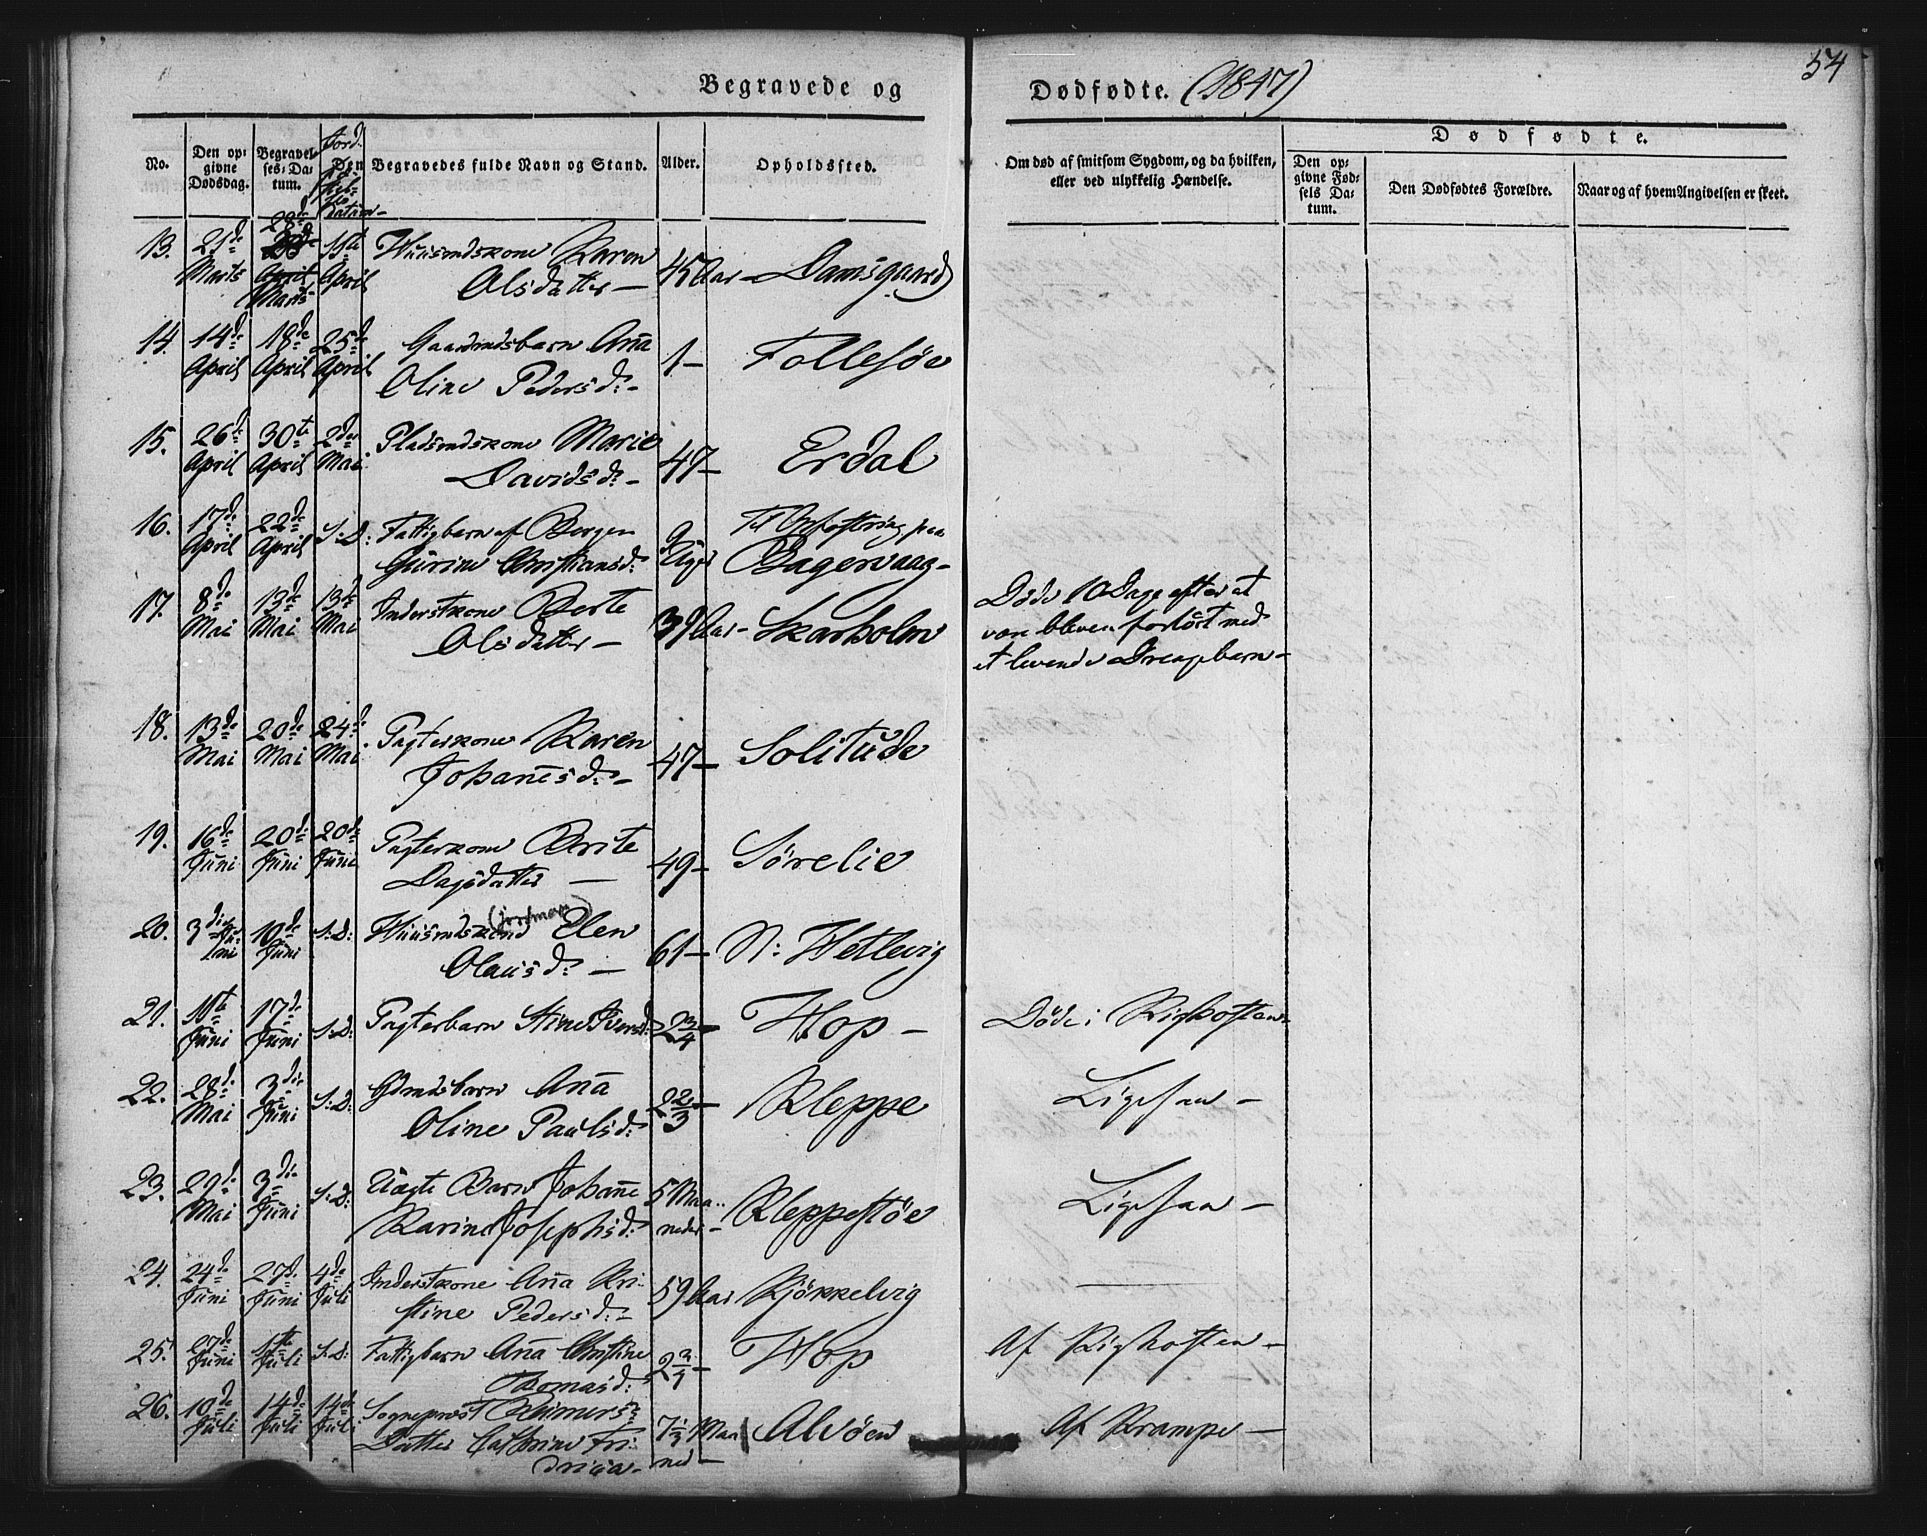 54
Begravede og Dødfødte. (1847)
No.
Den opgivne Dødsdag.
Begravelses-Datum.
Jord
Den
Datum
Begravedes fulde Navn og Stand.
Alder.
Opholdssted.
Om død af smitsom Sygdom, og da hvilken, eller ved ulykkelig Hændelse.
Dødfødte.
Den opgivne Fødsels Datum.
Den Dødfødtes Forældre.
Naar og af hvem Angivelsen er skeet.
13. 21de Marts 28de Marts 11te April Huusmdskone Karen Olsdatter – 45 Aar – Damsgaard
14. 14de April 18de April 25de April Gaardmdsbarn Aña Oline Pedersd: – 1 – Follesøe
15. 26de April 30te April 2den Mai Pladsmdskone Marie Davidsd: – 47 – Erdal
16. 17de April 22de April S: D: Fattigbarn af Bergen Gurine Christiansd: 9 Uger Til Opfostring paa Bagervaag –
17. 8de Mai 13de Mai 13de Mai Inderstkone Berte Olsdatter – 39 Aar – Skarholm Døde 10 Dage efter at være bleven forløst med et levende Drengebarn –
18. 13de Mai 20de Mai 24de Mai Pagterkone Karen Johañesd: – 47 – Solitude
19. 16de Juni 20de Juni 20de Juni Pagterkone Brite Dagsdatter – 49 – Sørelie
20. 3die Juni 10de Juni S: D: Huusmdskone (jordmor) Elen Olausd: – 61 – N: Hetlevig
21. 11te Juni 17de Juni S: D: Pagterbarn Stine Iversd: 2 3/4 – Hop – Døde i Kighosten –
22. 28de Mai 3die Juni S: D: Gdmdsbarn Aña Oline Paulsd: 2 2/3 – Kleppe Ligesaa –
23. 29de Mai 3die Juni S: D: Uægte Barn Johañe Karine Josephsd: 5 Maaneder – Kleppestøe Ligesaa –
24. 24de Juni 27de Juni 4de Juli Inderstkone Aña Kristine Pedersd: – 59 Aar Kjøkkelvig —
25. 27de Juni 1ste Juli S: D: Fattigbarn Aña Christine Thomasd: 2 3/4 – Hop Af Kighosten –
26. 10de Juli 14de Juli 14de Juli Sognepræst Reimers's Datter Cathrine Fridricia – 7 1/3 Maaned – Alvøen Af Krampe –